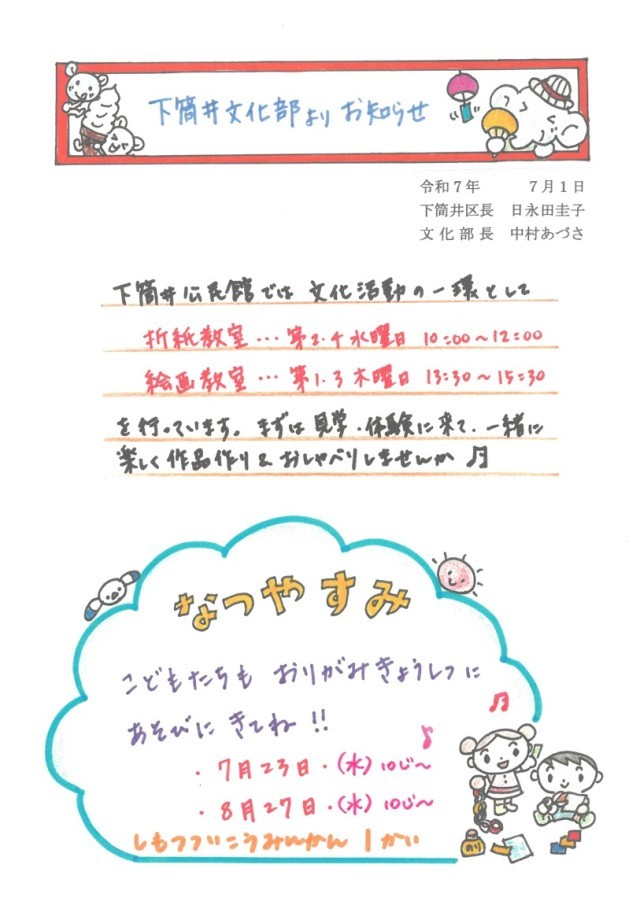 下筒井文化部より お知らせ
令和7年　　7月1日
下筒井区長　日永田圭子
文化部長　中村あづさ
下筒井公民館では 文化活動の一環として
折紙教室…第2.4水曜日 10:00~12:00
絵画教室…第1.3木曜日 13:30~15:30
を行っています。まずは見学・体験に来て、一緒に
楽しく作品作り&おしゃべりしませんか♫
なつやすみ
こどもたちも おりがみきょうしつに
あそびに きてね!!
・7月23日・(水)10じ~
・8月27日・(水)10じ~
しもつついこうみんかん 1かい
のり